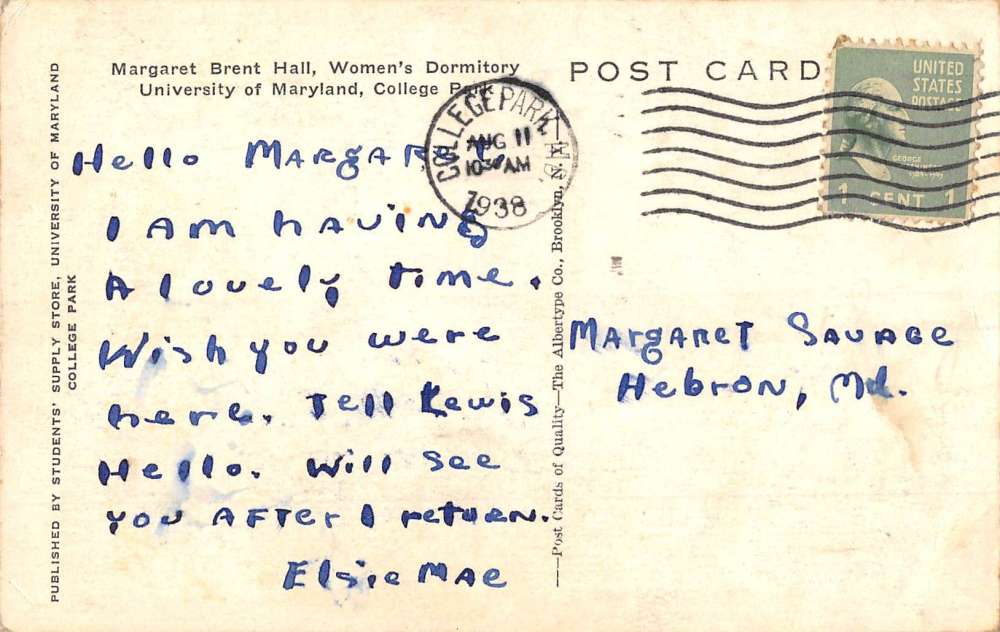 Margaret Brent Hall, Women's Dormitory
University of Maryland, College Park
POST CARD
UNITED
STATES
POSTAGE
GEORGE
WASHINGTON
1 CENT 1
COLLEGE PARK, MD.
AUG 11
10 30 AM
1938
Hello Margaret,
I am having
A lovely time.
Wish you were
here. Tell Lewis
Hello. Will see
you After I return.
Elsie Mae
Margaret Savage
Hebron, Md.
PUBLISHED BY STUDENTS' SUPPLY STORE, UNIVERSITY OF MARYLAND
COLLEGE PARK
—Post Cards of Quality—The Albertype Co., Brooklyn, N.